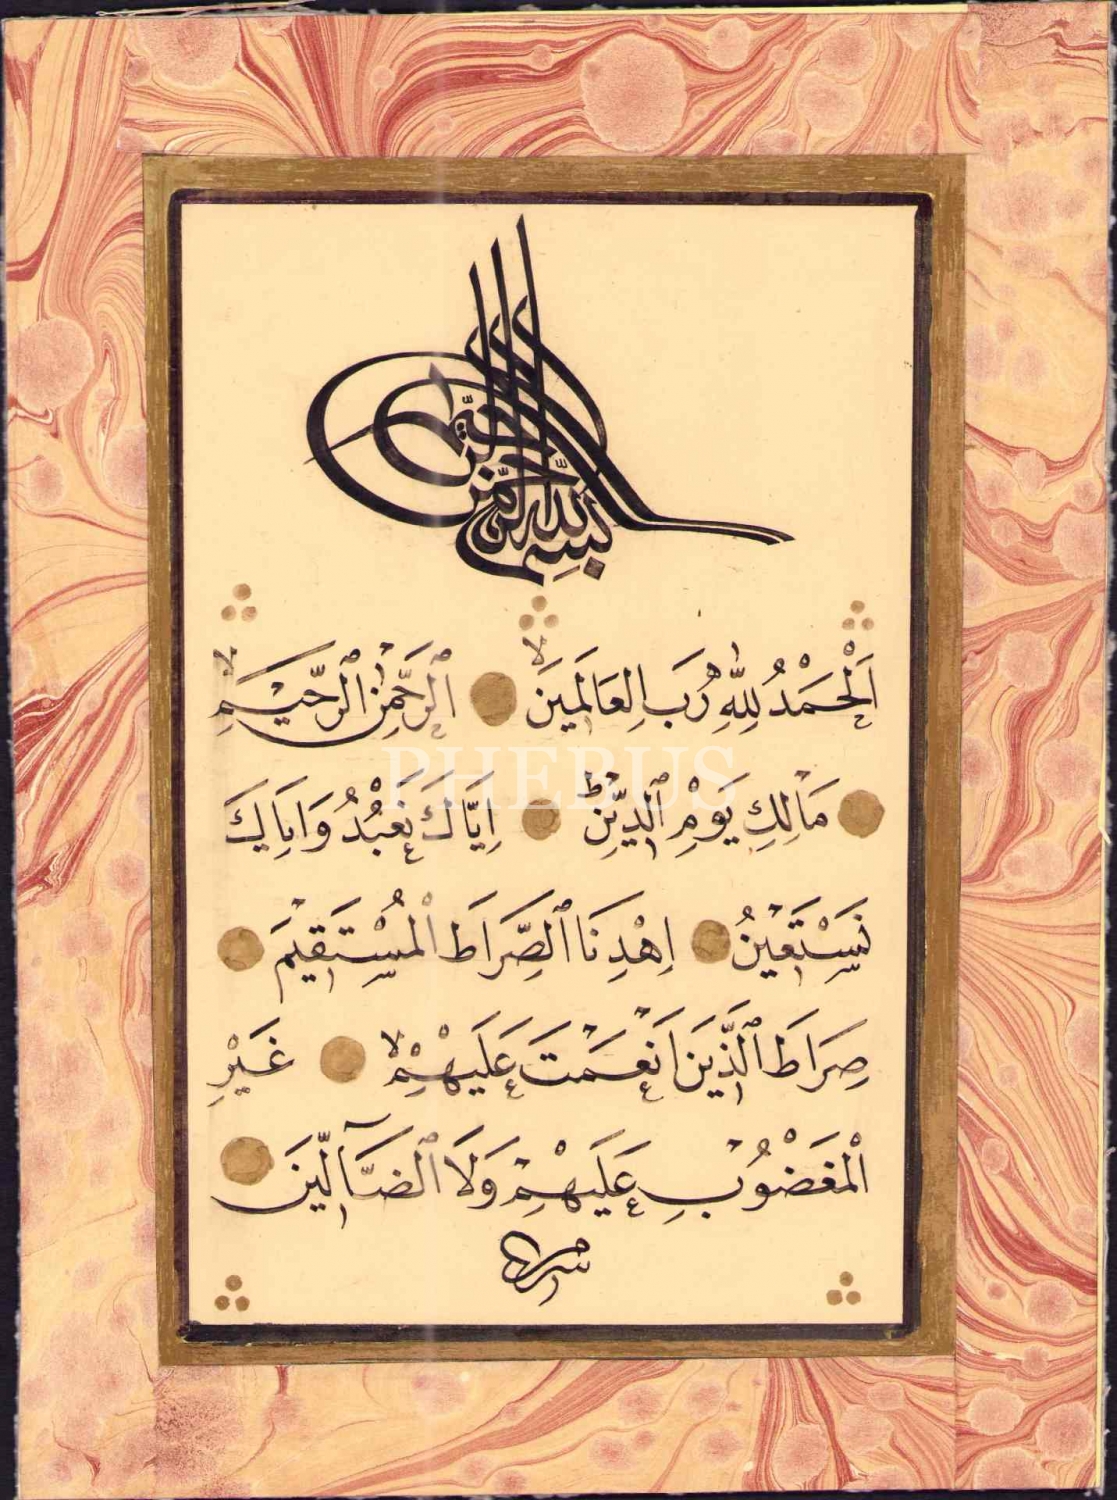 بسم الله الرحمن الرحيم
اَلْحَمْدُ لِلّٰهِ رَبِ الِعَالَمِينَۙ ٱلرَّحْمٰنِ ٱلرَّحْيمِۙ
مَالِكِ يَوْمِ ٱلدِّينِۜ اِيَّاكَ نَعْبُدُ وَاِيَاكَ
نَسْتَعْينُ اِهْدِنَا ٱلصِّرَاطَ ٱلْمُسْتَقْيمَ
صِرَاطَ ٱلَّذْينَ اَنْعَمْتَ عَلَيْهِمْۙ غَيْرِ
ٱلْمَغْضُوْبِ عَلَيْهِمْ وَلَا ٱلضَّٓالّينَ
PHEBUS